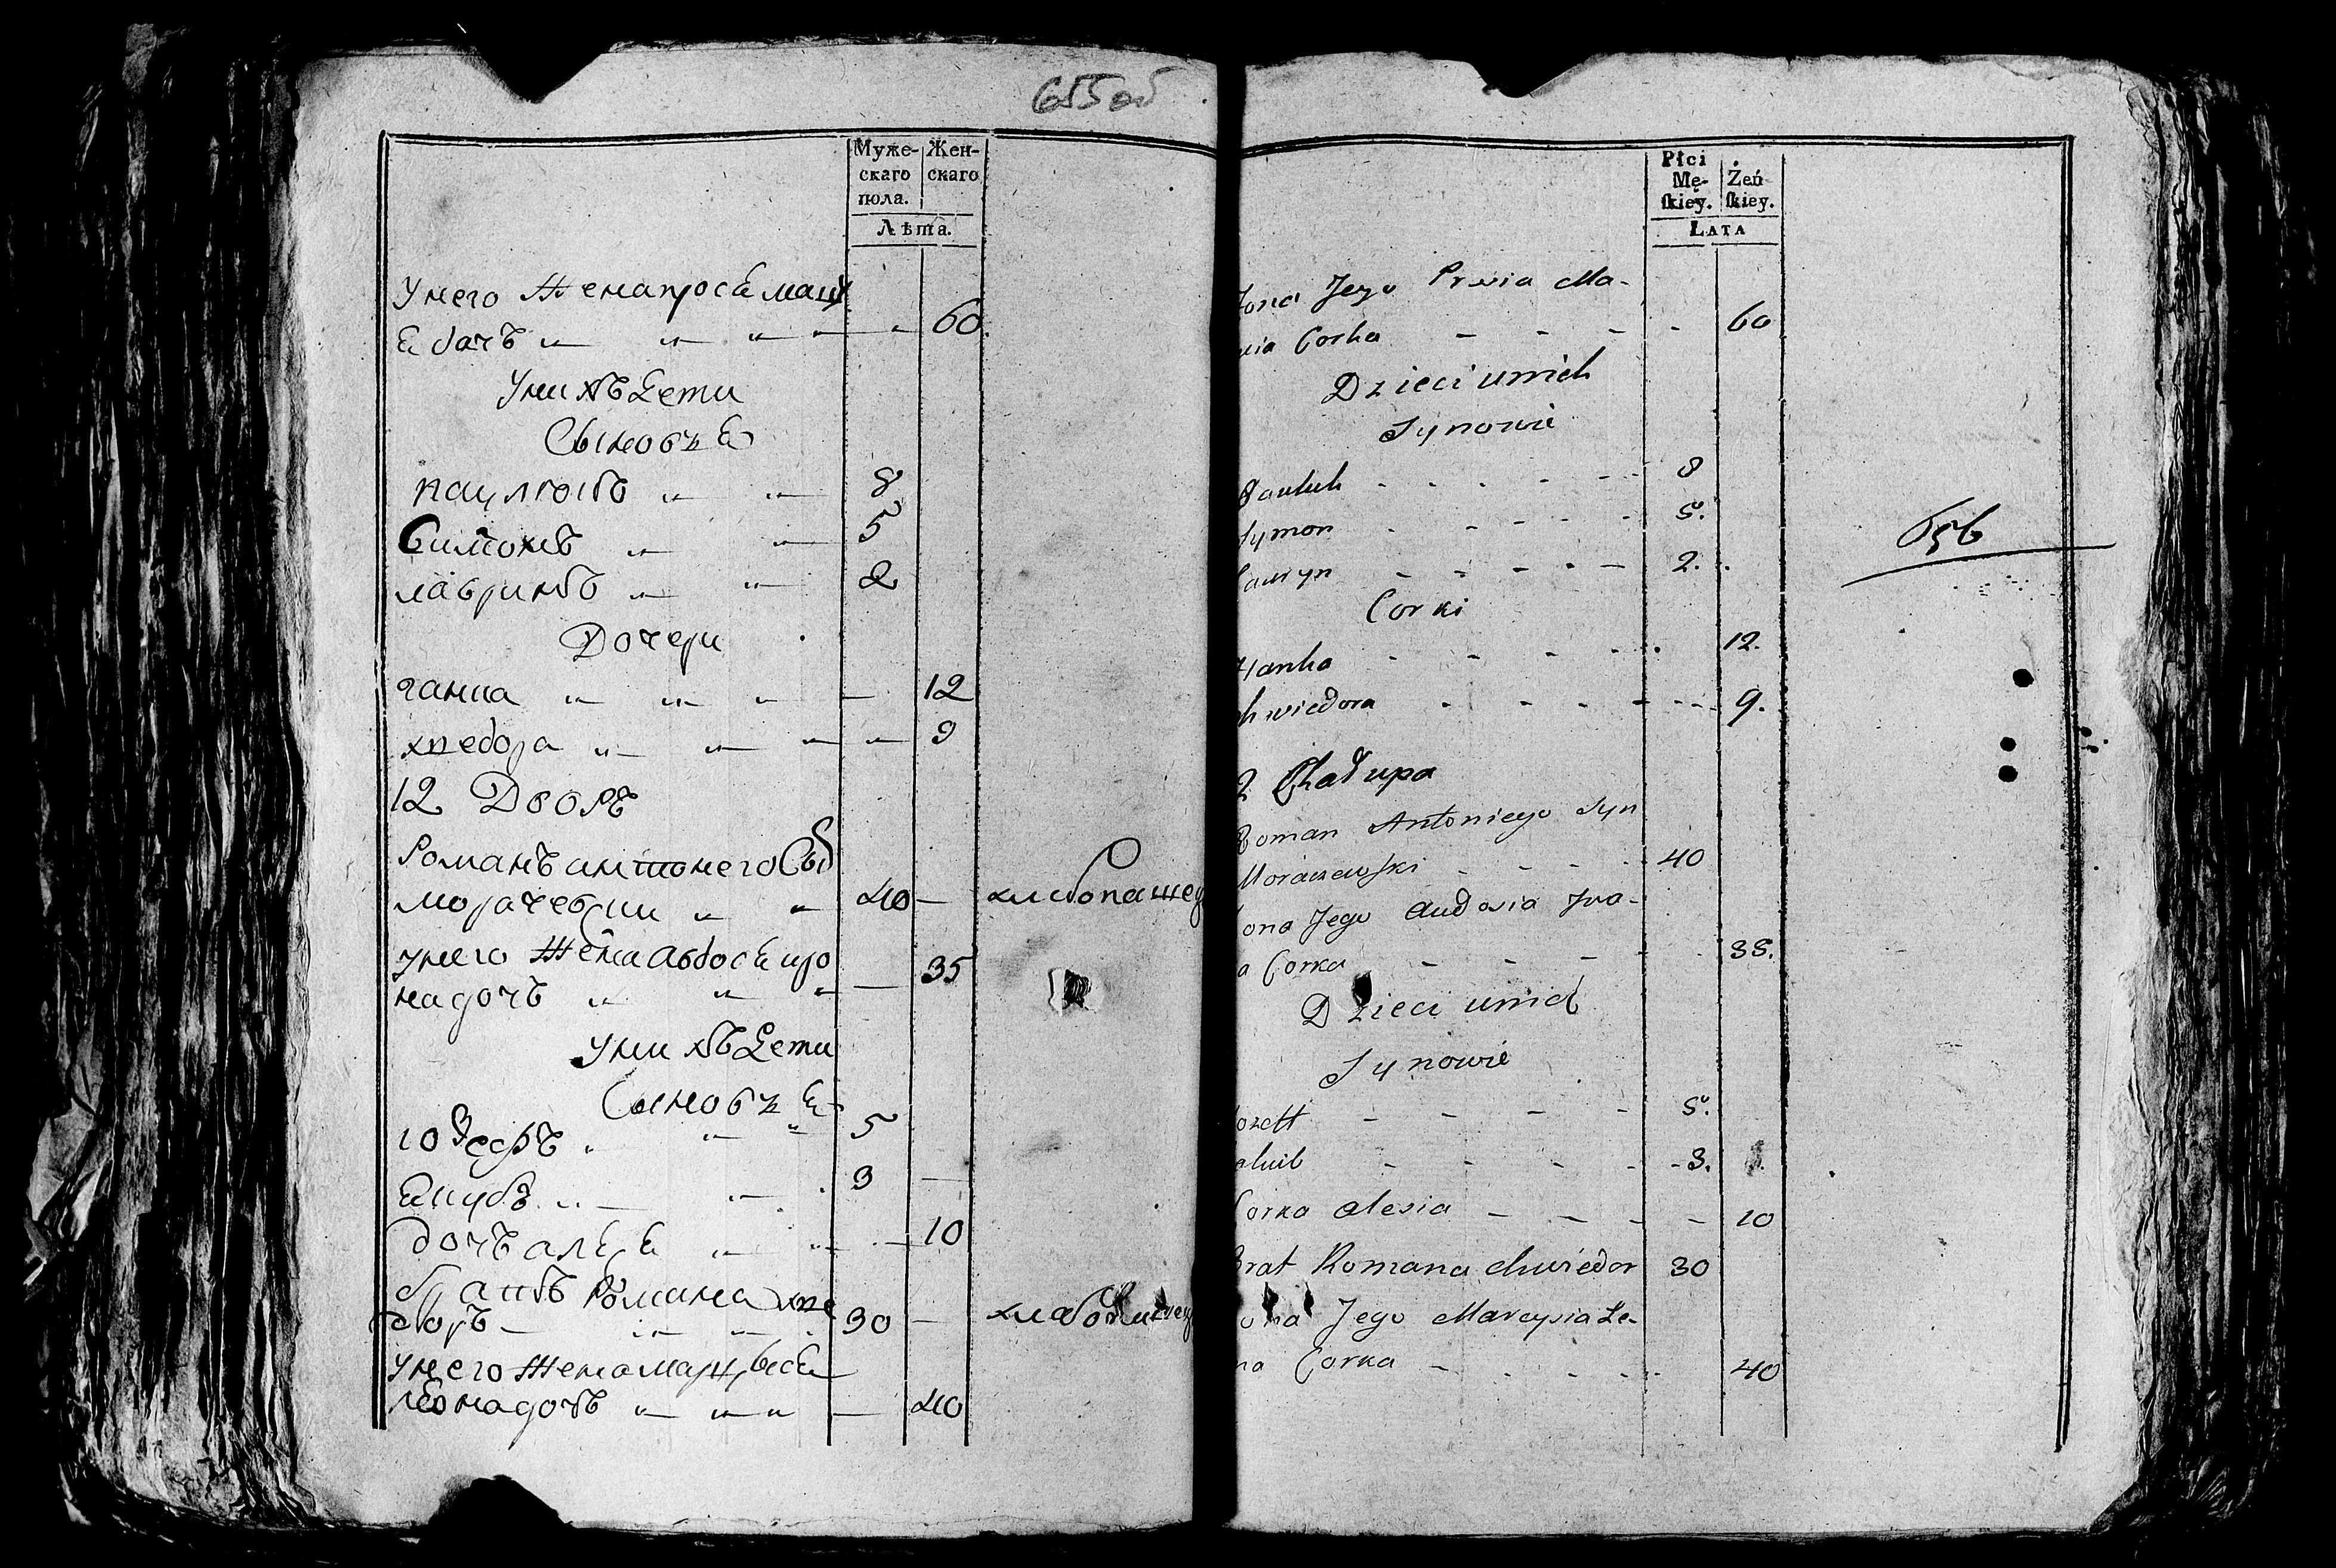 655 об
Муже-
скаго
пола.
Жен-
скаго
Лѣта.
У него Жена прося маци
я дочъ 60
У нихъ Дети
Сыновъя
паулюкъ 8
Симонъ 5
лавринъ 2
Дочери
ганна 12
хведора 9
12 Дворъ
Романъ антонего Сы
морачевски 40 хлебопашец
У него Жена авдося иро
на дочъ 35
У нихъ Дети
Сыновъя
юзефъ 5
якубъ 3
дочъ алеся 10
братъ Романа хве
доръ 30 хлебопашец
У него Жена марцыся
леона дочъ 40
Płci
Mę-
skiey.
Żeń
skiey.
Lata
żona Jego Prosia Ma-
Corka 60
Dzieci u nich
Synowie
Pauluk 8
Symon 5.
Lauryn 2.
Corki
Hanka 12.
Chwiedora 9.
656
2 Chałupa
Roman Antoniego Syn
Moraczewski 40
ona Jego Audosia Jra-
a Corka 35.
Dzieci u nich
Synowie
ozeff 5.
akub 3.
Corka Alesia 10
Brat Romana Chwiedor 30
ona Jego Marcysia Le-
na Corka 40